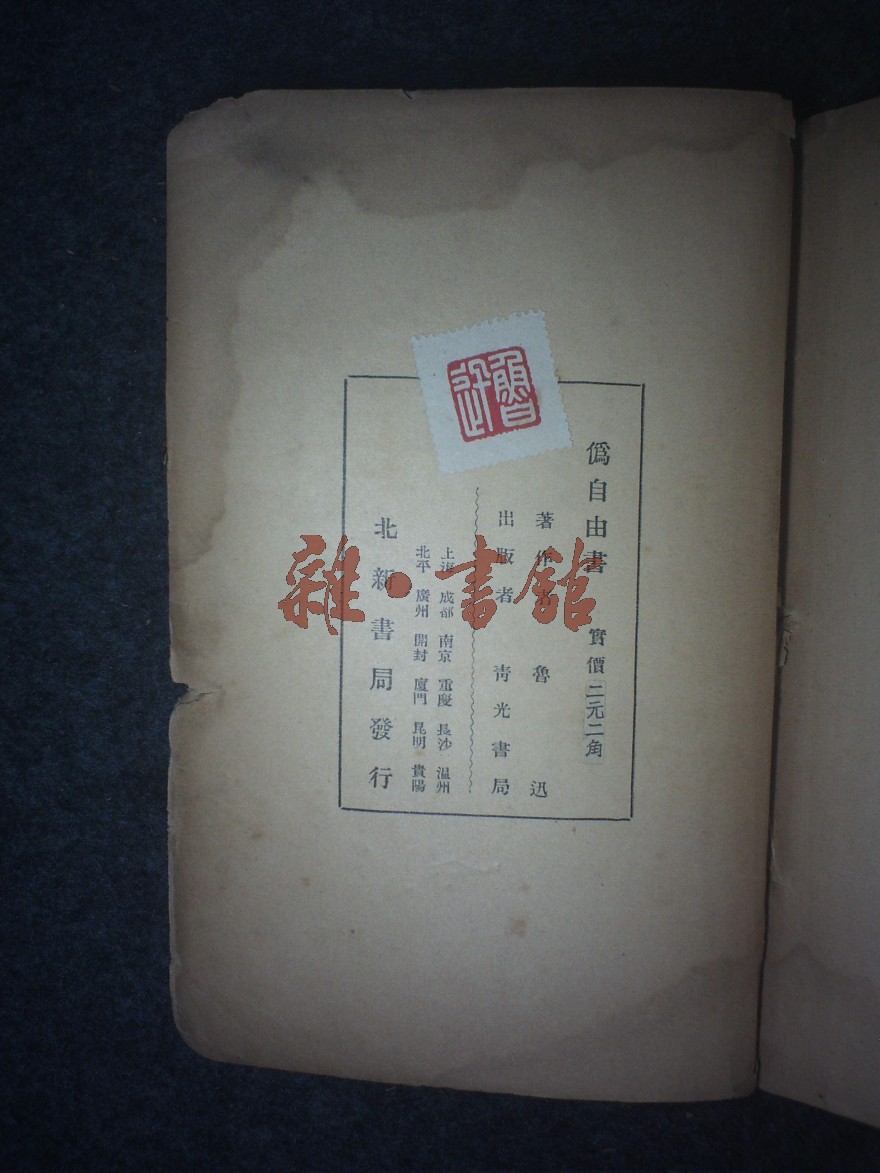 魯迅
僞自由書 實價二元二角
著作者 魯迅
出版者 青光書局
上海 成都 南京 重慶 長沙 温州
北平 廣州 開封 廈門 昆明 貴陽
北新書局發行
雜·書館